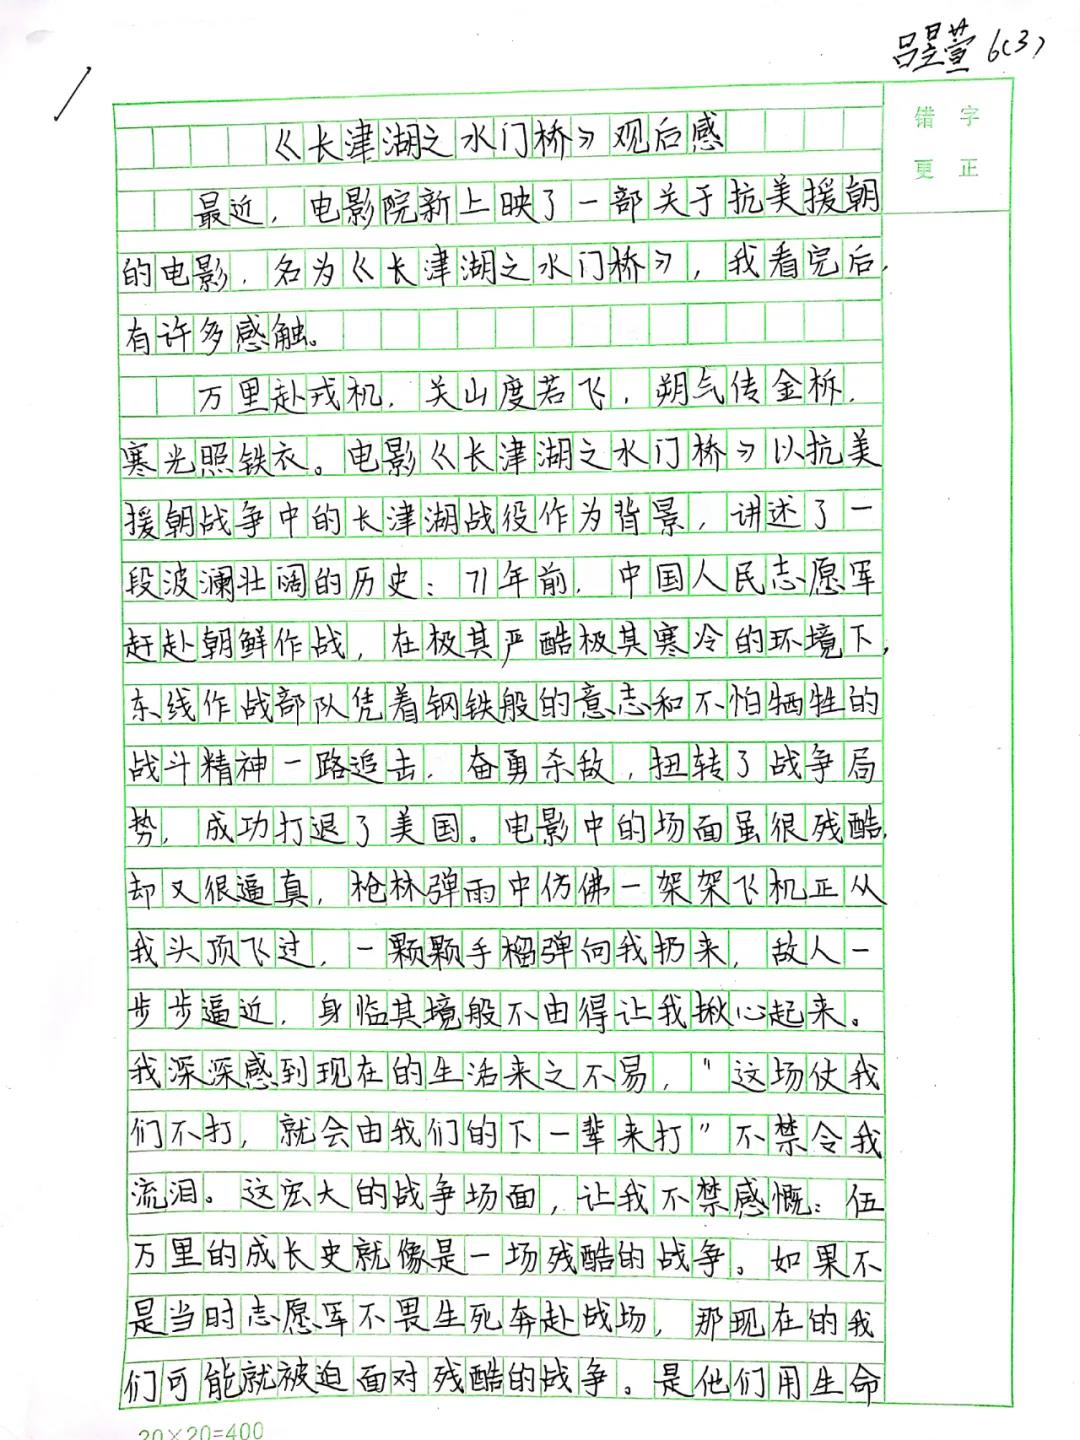 吕昱萱 6(3)
错字
更正
《长津湖之水门桥》观后感
最近，电影院新上映了一部关于抗美援朝
的电影，名为《长津湖之水门桥》，我看完后，
有许多感触。
万里赴戎机，关山度若飞，朔气传金柝，
寒光照铁衣。电影《长津湖之水门桥》以抗美
援朝战争中的长津湖战役作为背景，讲述了一
段波澜壮阔的历史：71年前，中国人民志愿军
赶赴朝鲜作战，在极其严酷极其寒冷的环境下，
东线作战部队凭着钢铁般的意志和不怕牺牲的
战斗精神一路追击，奋勇杀敌，扭转了战争局
势，成功打退了美国。电影中的场面虽很残酷，
却又很逼真，枪林弹雨中仿佛一架架飞机正从
我头顶飞过，一颗颗手榴弹向我扔来，敌人一
步步逼近，身临其境般不由得让我揪心起来。
我深深感到现在的生活来之不易，"这场仗我
们不打，就会由我们的下一辈来打"不禁令我
流泪。这宏大的战争场面，让我不禁感慨：伍
万里的成长史就像是一场残酷的战争。如果不
是当时志愿军不畏生死奔赴战场，那现在的我
们可能就被迫面对残酷的战争。是他们用生命
20×20=400